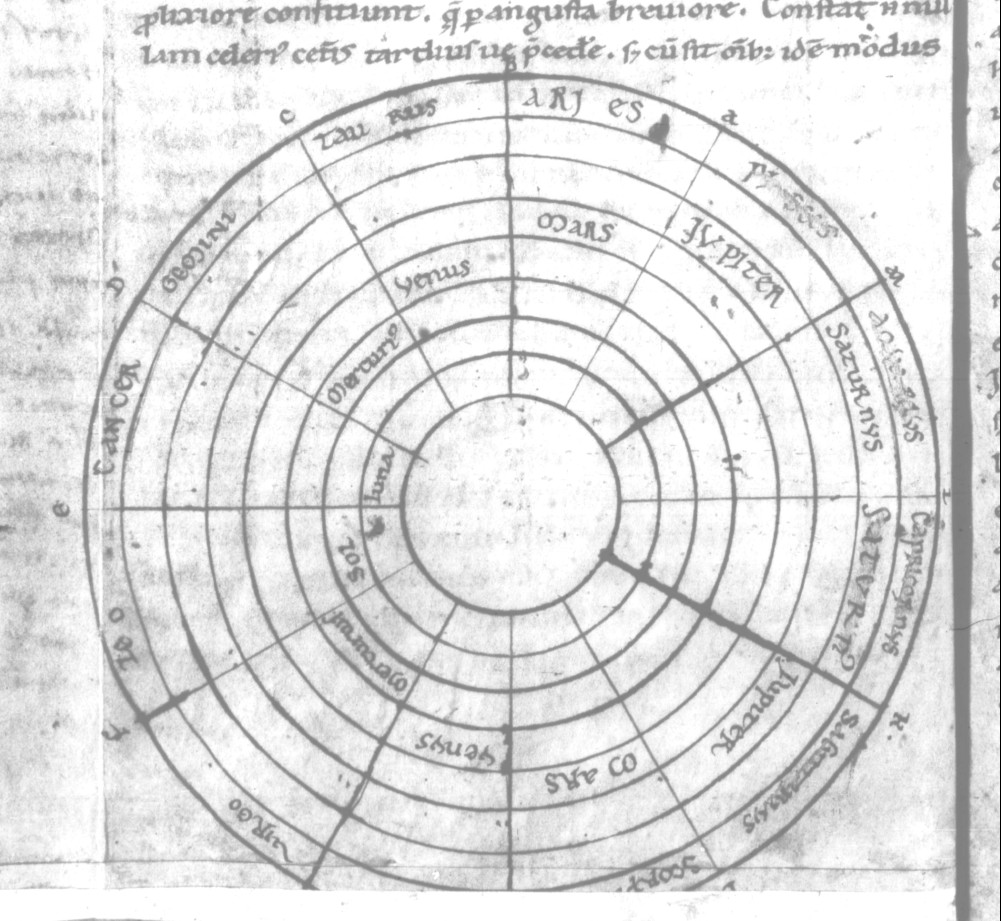 phixiore conficiunt. q̃ p angusta breuiore. Constat
lam celerꝰ cet̃is tardiusue p̃cedẽ. cũ sit oĩb: idẽ modus
B
ARIES
A
PISCES
N
AQUARIUS
L
CAPRICORNUS
K.
SAGITTARIUS
SCORP
VIRGO
F
LEO
E
CANCER
D
GEMINI
C
TAURUS
MARS
IVPITER
SATURNUS
SATURNꝰ
IUPITER
MARS
VENUS
MERCURIUS
SOL
LUNA
MERCURIꝰ
VENUS